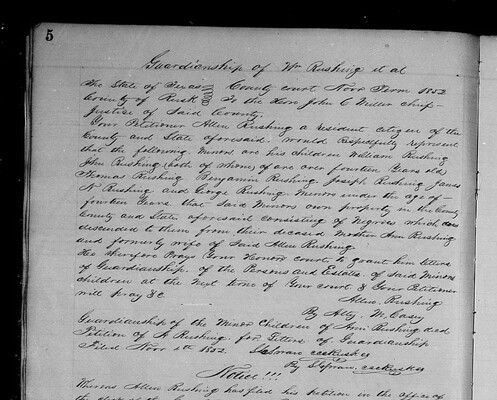 5
Guardianship of Wm Rushing et al
The State of Texas County court Nov Term 1852
County of Rusk To the Hon John C Miller chief
Justice of Said County
Your Petitioner Allen Rushing a resident citizen of the
County and State aforesaid would respectfully represent
that the following minors are his children William Rushing
John Rushing (both of whom of are over fourteen years old)
Thomas Rushing Benjamin Rushing Joseph Rushing James
N Rushing and George Rushing minors under the age of
fourteen years that said minors own property in the County
County and State aforesaid consisting of Negroes which
descended to them from their deceased mother Ann Rushing
and formerly wife of Said Allen Rushing
He therefore Prays your Honor court to grant him letters
of Guardianship of the Persons and Estates of Said minors
children at the next term of your court & your Petitioner
will pray &c Allen Rushing
By Atty. M. Casey
Guardianship of the minor Children of Ann Rushing decd
Petition of A Rushing for letters of Guardianship
Filed Nov 4th 1852
By
Notice!!!
Whereas Allen Rushing has filed his petition in the office of